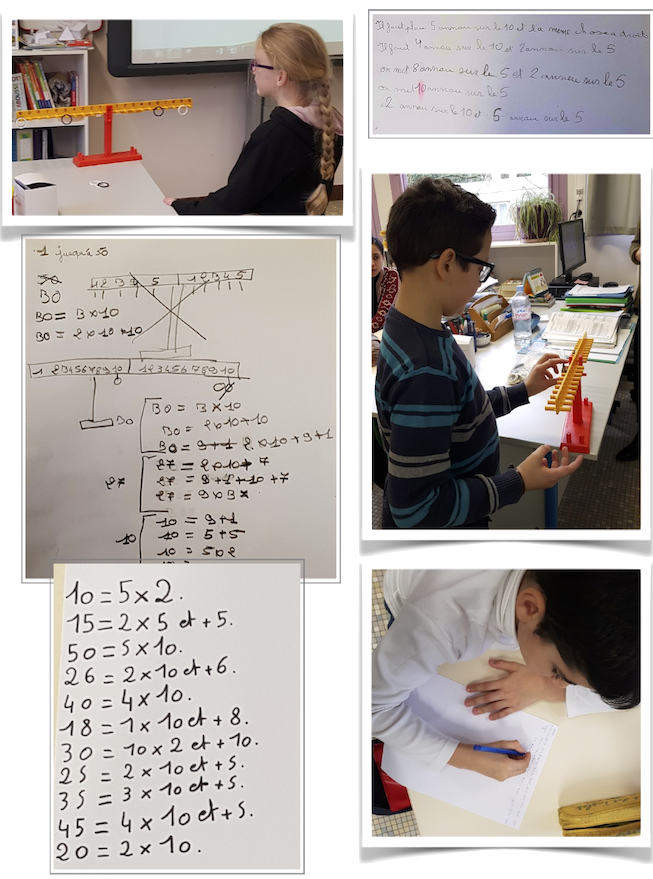 Il faut 5 anneau sur le 10 et la meme chose a droit
Il faut 4 anneau sur le 10 et 2 anneau sur le 5
on met 8 anneau sur le 5 et 2 anneau sur le 5
on met 10 anneau sur le 5
2 anneau sur le 10 et 6 anneau sur le 5
1 jusqu'à 50
50
30
30 = 3 x 10
30 = 2 x 10 + 10
1 2 3 4 5
1 2 3 4 5 6 7 8 9 10 1 2 3 4 5 6 7 8 9 10
30
30 = 3 x 10
30 = 2 x 10 + 10
30 = 9+1 2 x 10 + 9 + 1
27
27 = 2 x 10 + 7
27 = 9 + 1 + 10 + 7
27 = 9 x 3 x
10
10 = 9 + 1
10 = 5 + 5
10 = 5 x 2
10 = 5 x 2.
15 = 2 x 5 et + 5.
50 = 5 x 10.
26 = 2 x 10 et + 6.
40 = 4 x 10.
18 = 1 x 10 et + 8.
30 = 10 x 2 et + 10.
25 = 2 x 10 et + 5.
35 = 3 x 10 et + 5.
45 = 4 x 10 et + 5.
20 = 2 x 10.